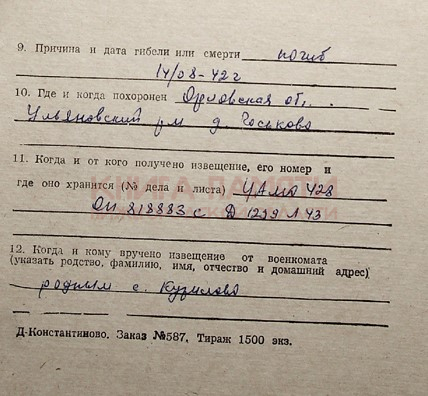 9. Причина и дата гибели или смерти погиб
14/08-42г
10. Где и когда похоронен Орловская об.,
Ульяновский р-н д. Госьково
КНИГА ПАМЯТИ
11. Когда и от кого получено извещение, его номер и
где оно хранится (№ дела и листа) ЦАМО 428
ОП 818883 с Д 1299 Л 43
12. Когда и кому вручено извещение от военкомата
(указать родство, фамилию, имя, отчество и домашний адрес)
родным с.
Д-Константиново. Заказ №587, Тираж 1500 экз.